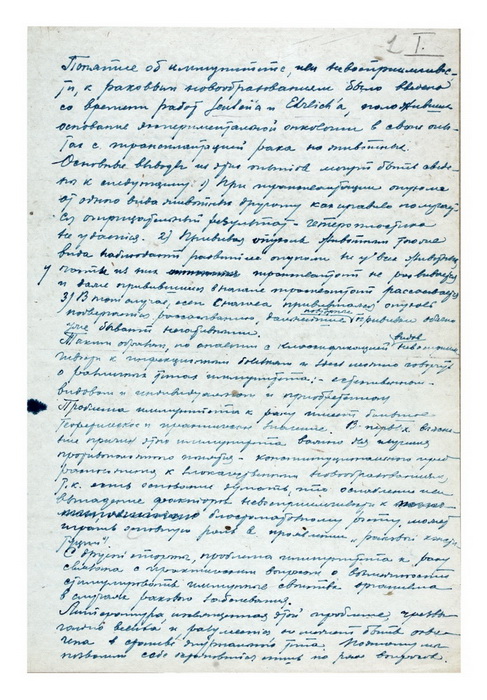 I.
Понятие об иммунитете, или невосприимчивос-
ти, к раковым новообразованиям было введено
со времени работ и Ehrlich'а, положивших
основание экспериментальной онкологии в своих опы-
тах с трансплантацией рака на животных.
Основные выводы из этих опытов могут быть сведе-
ны к следующему: 1) При трансплантации опухоли
от одного вида животного другому как правило получает-
ся отрицательный результат -
не удается. 2) Прививая опухоль животным того же
вида наблюдают развитие опухоли не у всех животных
у части из них трансплантат не развивается
и даже привившись вначале трансплантат рассасывается
3) В том случае, если сначала привившаяся опухоль
подверглась рассасыванию, повторные прививки обычно
уже бывают негативными.
Таким образом, по аналогии с классификацией видов невосприим-
чивости к инфекционным болезням и здесь можно говорить
о различных типах иммунитета: - естественном
видовом и индивидуальном и приобретенном
Проблема иммунитета к раку имеет большое
теоретическое и практическое значение. В первых
причин этого иммунитета важно для изучения
- конституционального пред
к злокачественным новообразованиям,
т.к. есть основание думать, что ослабление или
выпадение факторов невосприимчивости к
бластоматозному росту, может
играть основную роль в проявлении "раковой
С другой стороны, проблема иммунитета к раку
связана с практическим вопросом о возможности
стимулировать иммунные свойства организма
в случаях ракового заболевания.
Литература посвященная этой проблеме, чрезвы-
чайно велика и разумеется не может быть
в одного типа. Поэтому мы
позволим себе остановиться лишь на ряде вопросов.